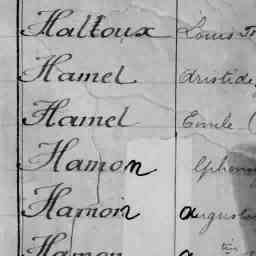 Haltoux Louis
Hamel Aristide
Hamel Emile (
Hamon lphons
Hamon augustin
Hamon